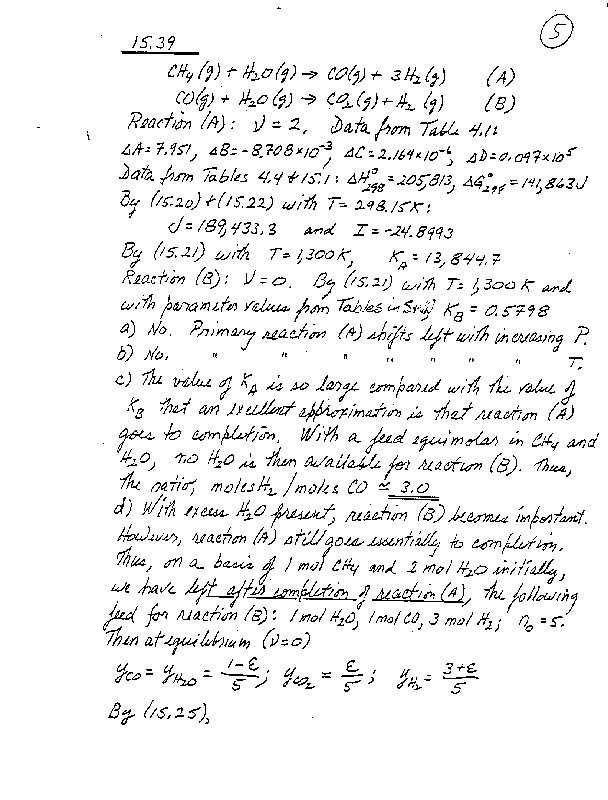 5
15.39
CH4(g) + H2O(g) → CO(g) + 3H2(g) (A)
CO(g) + H2O(g) → CO2(g) + H2(g) (B)
Reaction (A): ν = 2. Data from Table 4.1:
ΔA = 7.951, ΔB = -8.708×10⁻³, ΔC = 2.164×10⁻⁶, ΔD = 0.097×10⁵
Data from Tables 4.4 & 15.1: ΔH°298 = 205,813, ΔG°298 = 141,863 J
By (15.20) & (15.22) with T = 298.15 K:
J = 189,433.3 and I = -24.8993
By (15.21) with T = 1,300 K, KA = 13,844.7
Reaction (B): ν = 0. By (15.21) with T = 1,300 K and
with parameter values from Tables in KB = 0.5798
a) No. Primary reaction (A) shifts left with increasing P.
b) No. " " " " " " " T.
c) The value of KA is so large compared with the value of
KB that an excellent approximation is that reaction (A)
goes to completion. With a feed equimolar in CH4 and
H2O, no H2O is then available for reaction (B). Thus,
the ratio, moles H2 / moles CO ≅ 3.0
d) With excess H2O present, reaction (B) becomes important.
However, reaction (A) still goes essentially to completion.
Thus, on a basis of 1 mol CH4 and 2 mol H2O initially,
we have left after completion of reaction (A), the following
feed for reaction (B): 1 mol H2O, 1 mol CO, 3 mol H2; n0 = 5.
Then at equilibrium (ν=0)
yCO = yH2O = (1-ε)/5; yCO2 = ε/5; yH2 = (3+ε)/5
By (15.25),